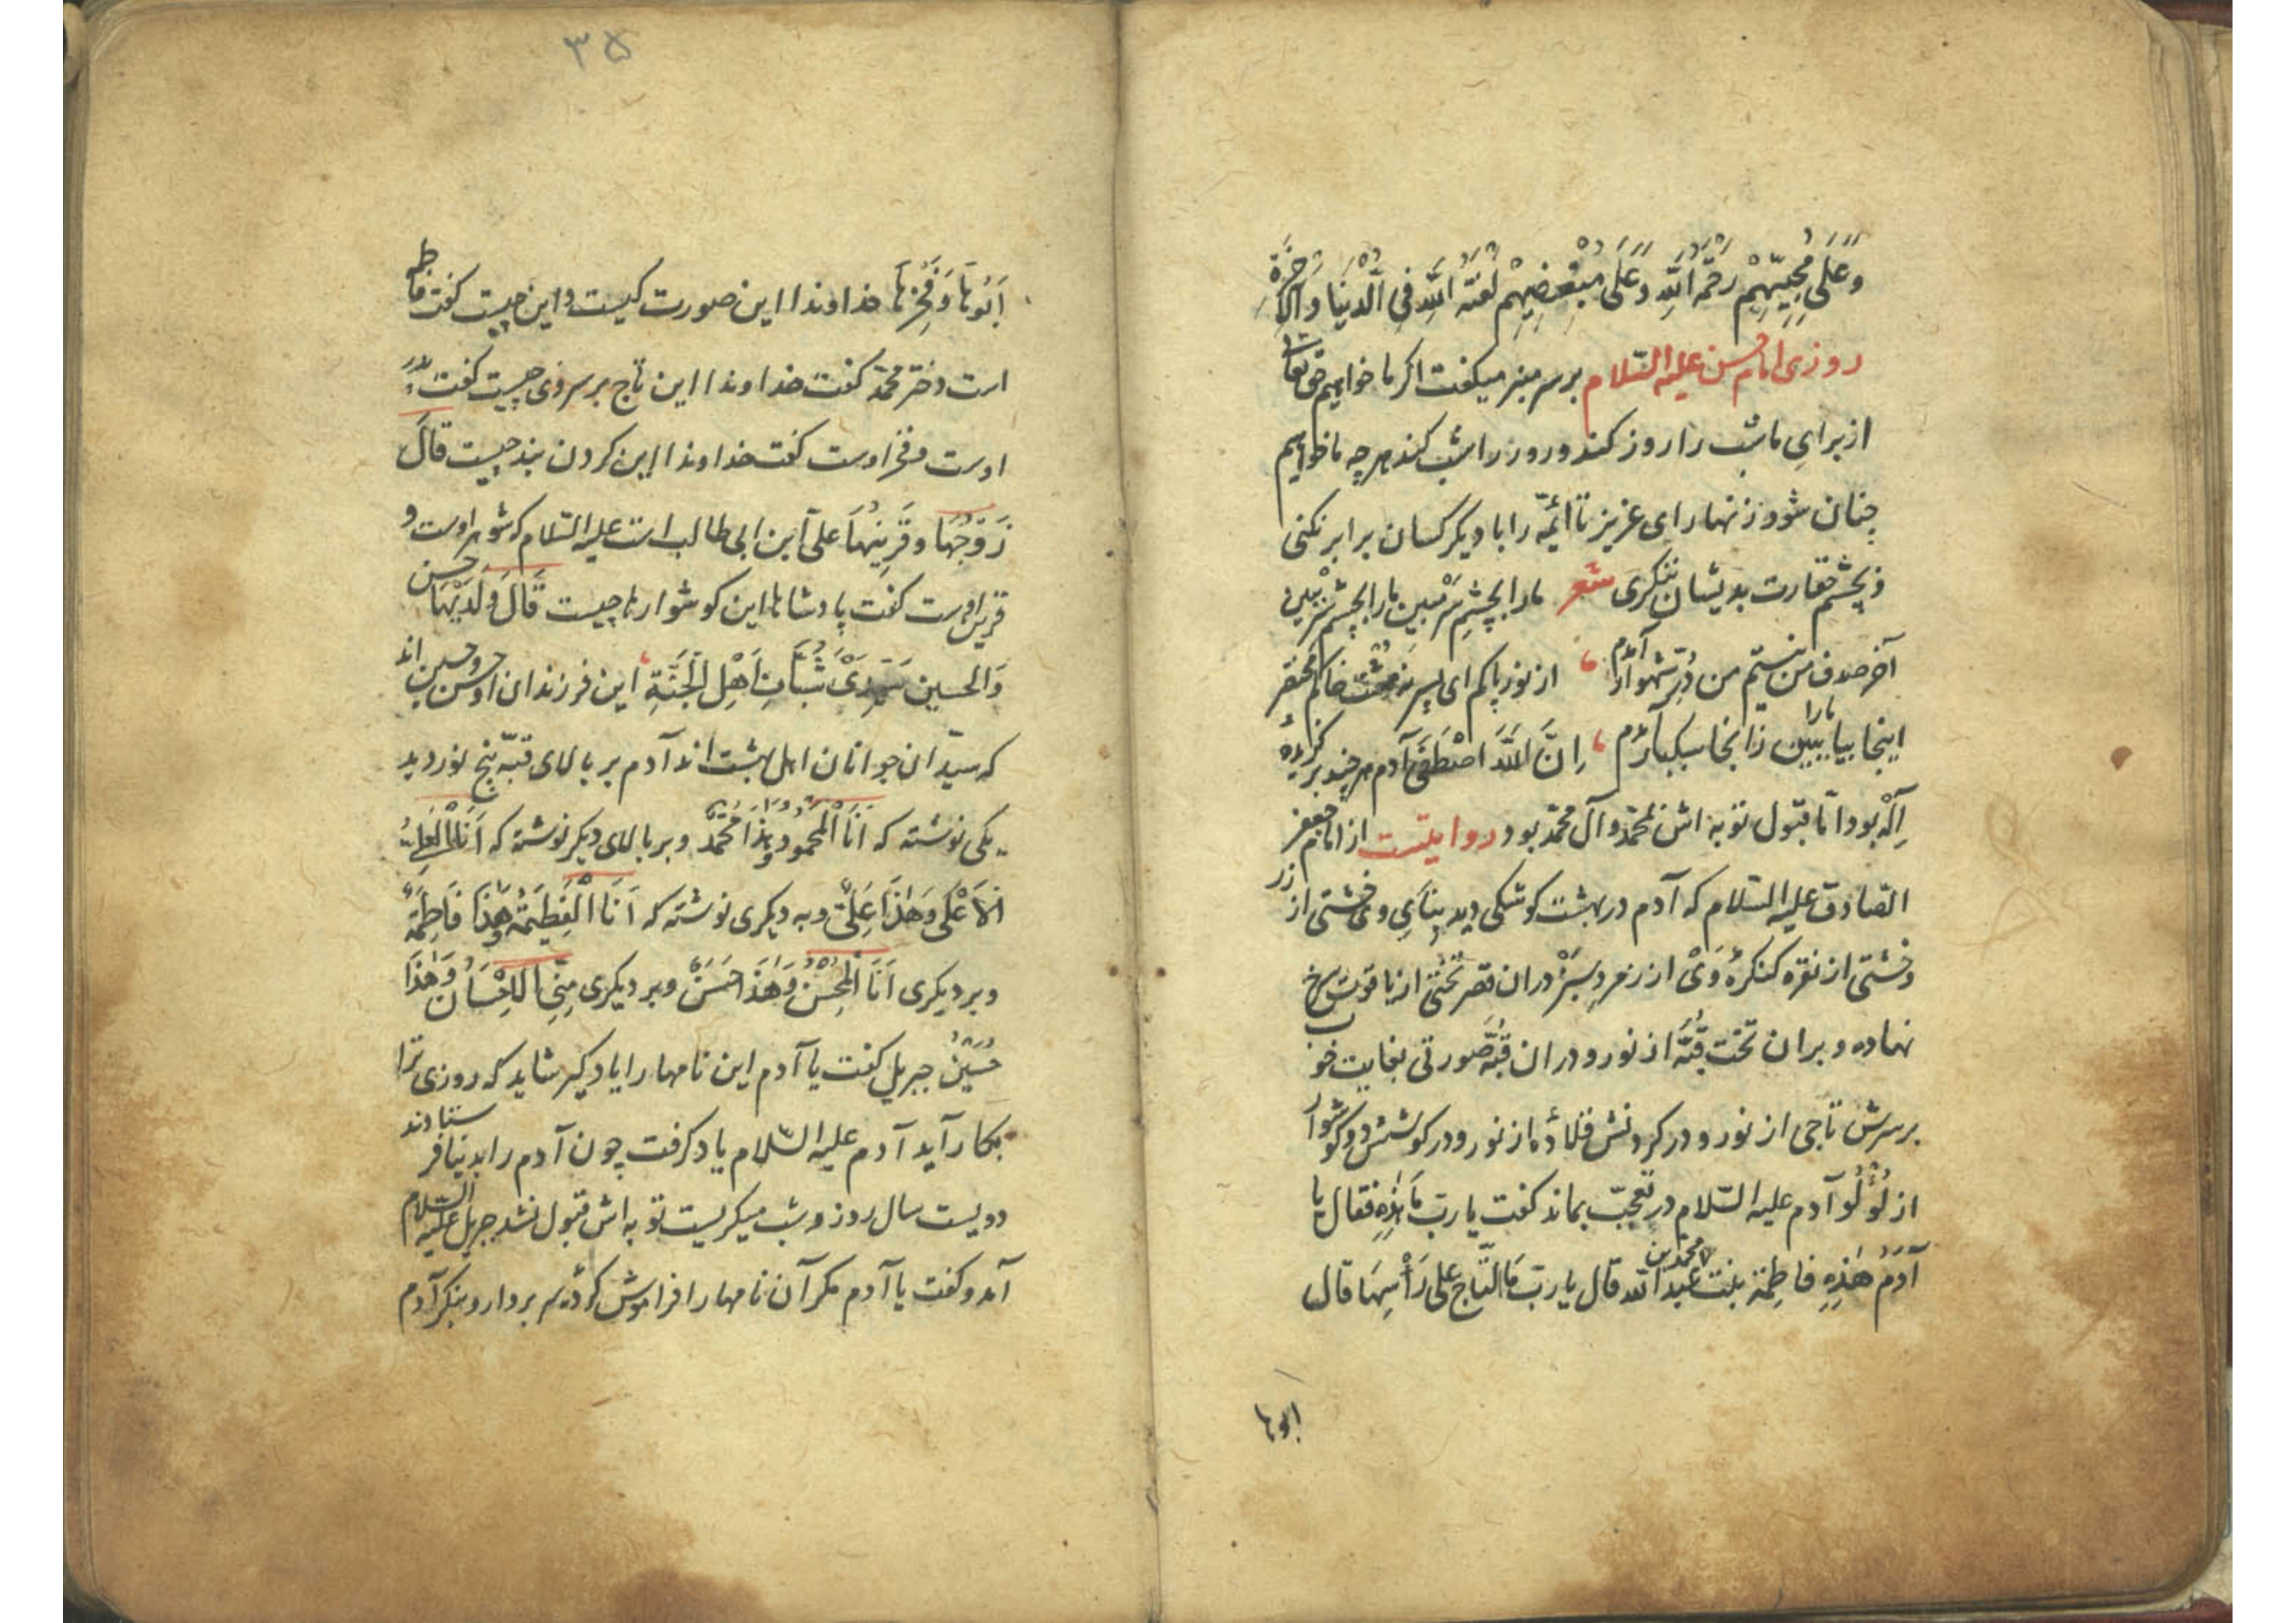 وَعَلَی مُحِبِّیهِمْ رَحْمَةُ اللّٰهِ وَعَلَی مُبْغِضِیهِمْ لَعْنَةُ اللّٰهِ فِی الدُّنْیَا وَالآخِرَة
روزی امام حسن علیه السّلام بر سر منبر میکفت اکر ما خواهیم حق تعالی
از برایِ ما شب را روز کند و روز را شب کند هر چه ما خواهیم
چنان شود زنهار ای عزیز تا ائمّه را با دیکر کسان برابر نکنی
و بچشم حقارت بدیشان ننکری شعر ما را بچشمِ سَر مبین ما را بچشم سِرّ ببین
آخر صدف من نیستم من دُرّ شهوار آمدم از نور پاکم ای پسر نه مشت خاکم مختصر
اینجا بیا ما را ببین زانجا سبکبار آمدم اِنَّ اللّٰهَ اصْطَفَی آدم هر چند بر کزیدهٔ
اِلٰه بود امّا قبول توبه اش بمحمّد و آل محمّد بود روایتست از امام جعفر
الصّادق علیه السّلام که آدم در بهشت کوشکی دید بنایِ وی خشتی از زر
و خشتی از نقره کنکرهٔ وَیْ از زمردِ سبز در ان قصر تختی از یاقوت سرخ
نهاده و بران تخت قُبّهٔ از نور و دران قبّه صورتی بغایت خوب
بر سرش تاجی از نور و در کردنش قلادهٔ از نور و در کوشش دو کوشوار
از لُؤلُؤ آدم علیه السّلام در تعجّب بماند کفت یا ربّ مَا هٰذِهِ فقال یا
آدَمُ هٰذِهِ فاطِمَة بنت محمّد بن عبد اللّٰه قال یا ربّ مَا التّاج علی رَأسِهَا قال
ابوها
۳۵
اَبُوهَا وَفَخْرُهَا خداوندا این صورت کیست و این چیست کفت فاطمه
است دختر محمّد کفت خداوندا این تاج بر سر وی چیست کفت پدر
اوست و فخر اوست کفت خداوندا این کردن بند چیست قالَ
زَوْجُهَا وقَرِینُهَا علیّ ابن ابی طالب است علیه السّلام که شوهر اوست و
قرین اوست کفت پادشاها این کوشوارها چیست قَالَ وَلَدَیْهَا حسن
وَالحسین سَیِّدَیْ شَبَابِ اَهْلِ الْجَنَّةِ این فرزندان او حسن و حسین اند
که سیّدان جوانان اهل بهشت اند آدم بر بالای قبّه پنج نور دید
یکی نوشته که اَنَا الْمَحمُودُ وهٰذَا مُحَمَّدٌ و بر بالای دیکر نوشته که اَنَا الْعَلِیُّ
الْاَعْلَی وَهٰذَا عَلِیٌّ و به دیکری نوشته که اَنَا الْفَطِیمَةُ وَهٰذَا فَاطِمَةٌ
و بر دیکری اَنَا الْمُحْسِنُ وَهٰذَا حَسَنٌ و بر دیکری مِنِّی الاِحْسَانُ وَهٰذَا
حُسَیْنٌ جبریل کفت یا آدم این نامها را یاد کیر شاید که روزی ترا
بکار آید آدم علیه السّلام یاد کرفت چون آدم را بدنیا فرستادند
دویست سال روز و شب میکریست توبه اش قبول نشد جبریل علیه السلام
آمد و کفت یا آدم مکر آن نامها را فراموش کردهٔ سر بردار و بنکر آدم